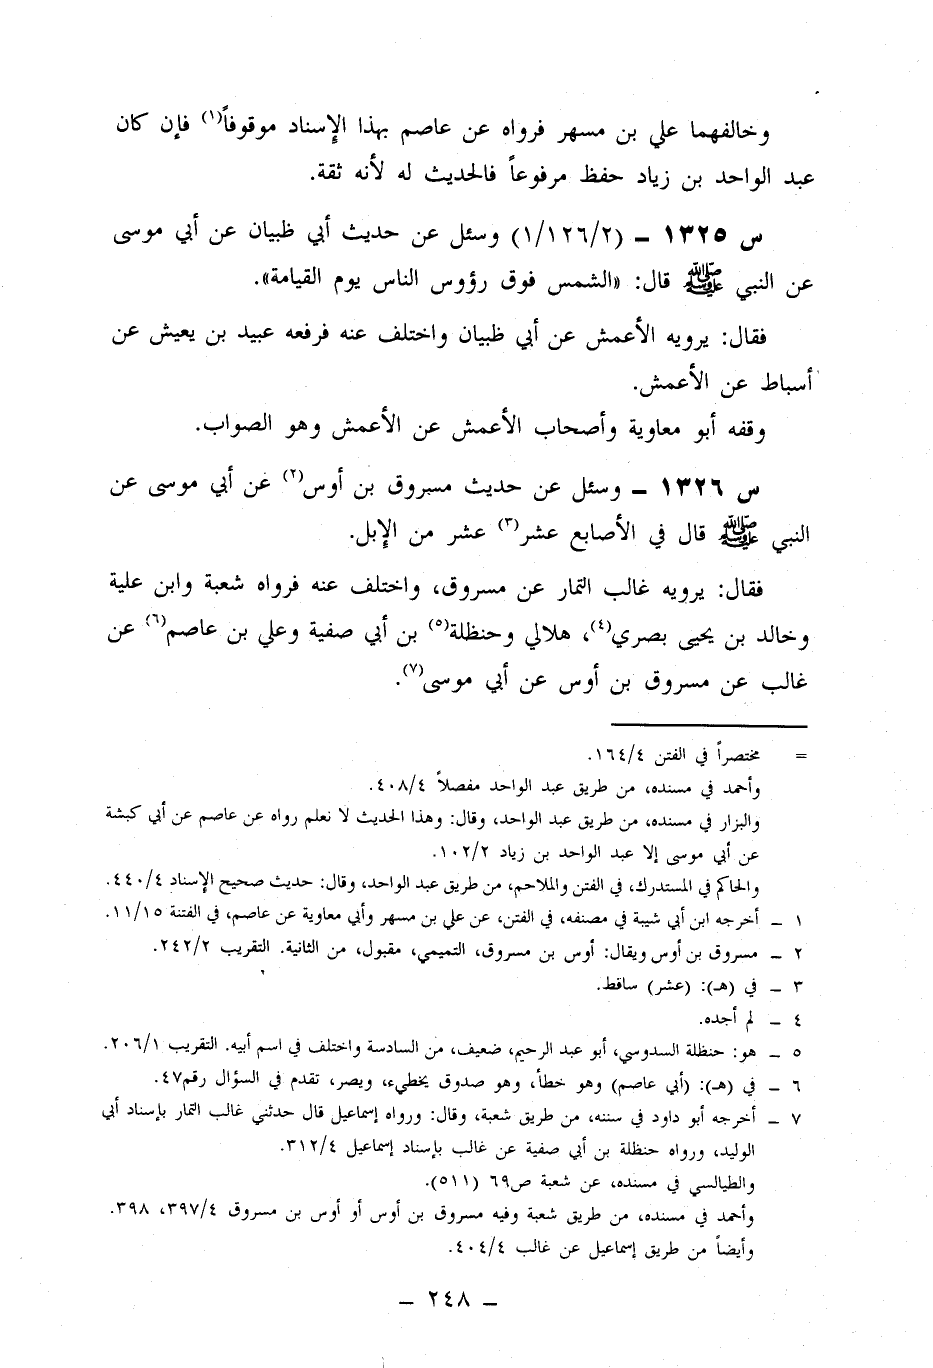 وخالفهما علي بن مسهر فرواه عن عاصم بهذا الإسناد موقوفاً(١) فإن كان
عبد الواحد بن زياد حفظ مرفوعاً فالحديث له لأنه ثقة.
س ١٣٢٥ ـ (١/١٢٦/٢) وسئل عن حديث أبي ظبيان عن أبي موسى
عن النبي ﷺ قال: «الشمس فوق رؤوس الناس يوم القيامة».
فقال: يرويه الأعمش عن أبي ظبيان واختلف عنه فرفعه عبيد بن يعيش عن
أسباط عن الأعمش.
وقفه أبو معاوية وأصحاب الأعمش عن الأعمش وهو الصواب.
س ١٣٢٦ ـ وسئل عن حديث مسروق بن أوس(٢) عن أبي موسى عن
النبي ﷺ قال في الأصابع عشر(٣) عشر من الإبل.
فقال: يرويه غالب التمار عن مسروق، واختلف عنه فرواه شعبة وابن علية
وخالد بن يحيى بصري(٤)، هلالي وحنظلة(٥) بن أبي صفية وعلي بن عاصم(٦) عن
غالب عن مسروق بن أوس عن أبي موسى(٧).
= مختصراً في الفتن ١٦٤/٤.
وأحمد في مسنده، من طريق عبد الواحد مفصلاً ٤٠٨/٤.
والبزار في مسنده، من طريق عبد الواحد، وقال: وهذا الحديث لا نعلم رواه عن عاصم عن أبي كبشة
عن أبي موسى إلا عبد الواحد بن زياد ١٠٢/٢.
والحاكم في المستدرك، في الفتن والملاحم، من طريق عبد الواحد، وقال: حديث صحيح الإسناد ٤٤٠/٤.
١ ـ أخرجه ابن أبي شيبة في مصنفه، في الفتن، عن علي بن مسهر وأبي معاوية عن عاصم، في الفتنة ١١/١٥.
٢ ـ مسروق بن أوس ويقال: أوس بن مسروق، التميمي، مقبول، من الثانية. التقريب ٢٤٢/٢.
٣ ـ في (هـ): (عشر) ساقط.
٤ ـ لم أجده.
٥ ـ هو: حنظلة السدوسي، أبو عبد الرحيم، ضعيف، من السادسة واختلف في اسم أبيه. التقريب ٢٠٦/١.
٦ ـ في (هـ): (أبي عاصم) وهو خطأ، وهو صدوق يخطيء، ويصر، تقدم في السؤال رقم٤٧.
٧ ـ أخرجه أبو داود في سننه، من طريق شعبة، وقال: ورواه إسماعيل قال حدثني غالب التمار بإسناد أبي
الوليد، ورواه حنظلة بن أبي صفية عن غالب بإسناد إسماعيل ٣١٢/٤.
والطيالسي في مسنده، عن شعبة ص٦٩ (٥١١).
وأحمد في مسنده، من طريق شعبة وفيه مسروق بن أوس أو أوس بن مسروق ٣٩٧/٤، ٣٩٨.
وأيضاً من طريق إسماعيل عن غالب ٤٠٤/٤.
ـ ٢٤٨ ـ